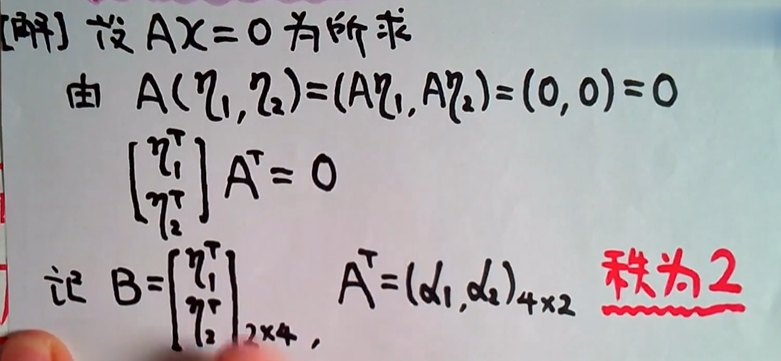 [解] 设 AX=0 为所求
由 A(η₁,η₂)=(Aη₁,Aη₂)=(0,0)=0
[η₁ᵀ η₂ᵀ] Aᵀ=0
记 B=[η₁ᵀ η₂ᵀ]₂ₓ₄, Aᵀ=(α₁,α₂)₄ₓ₂ 秩为2